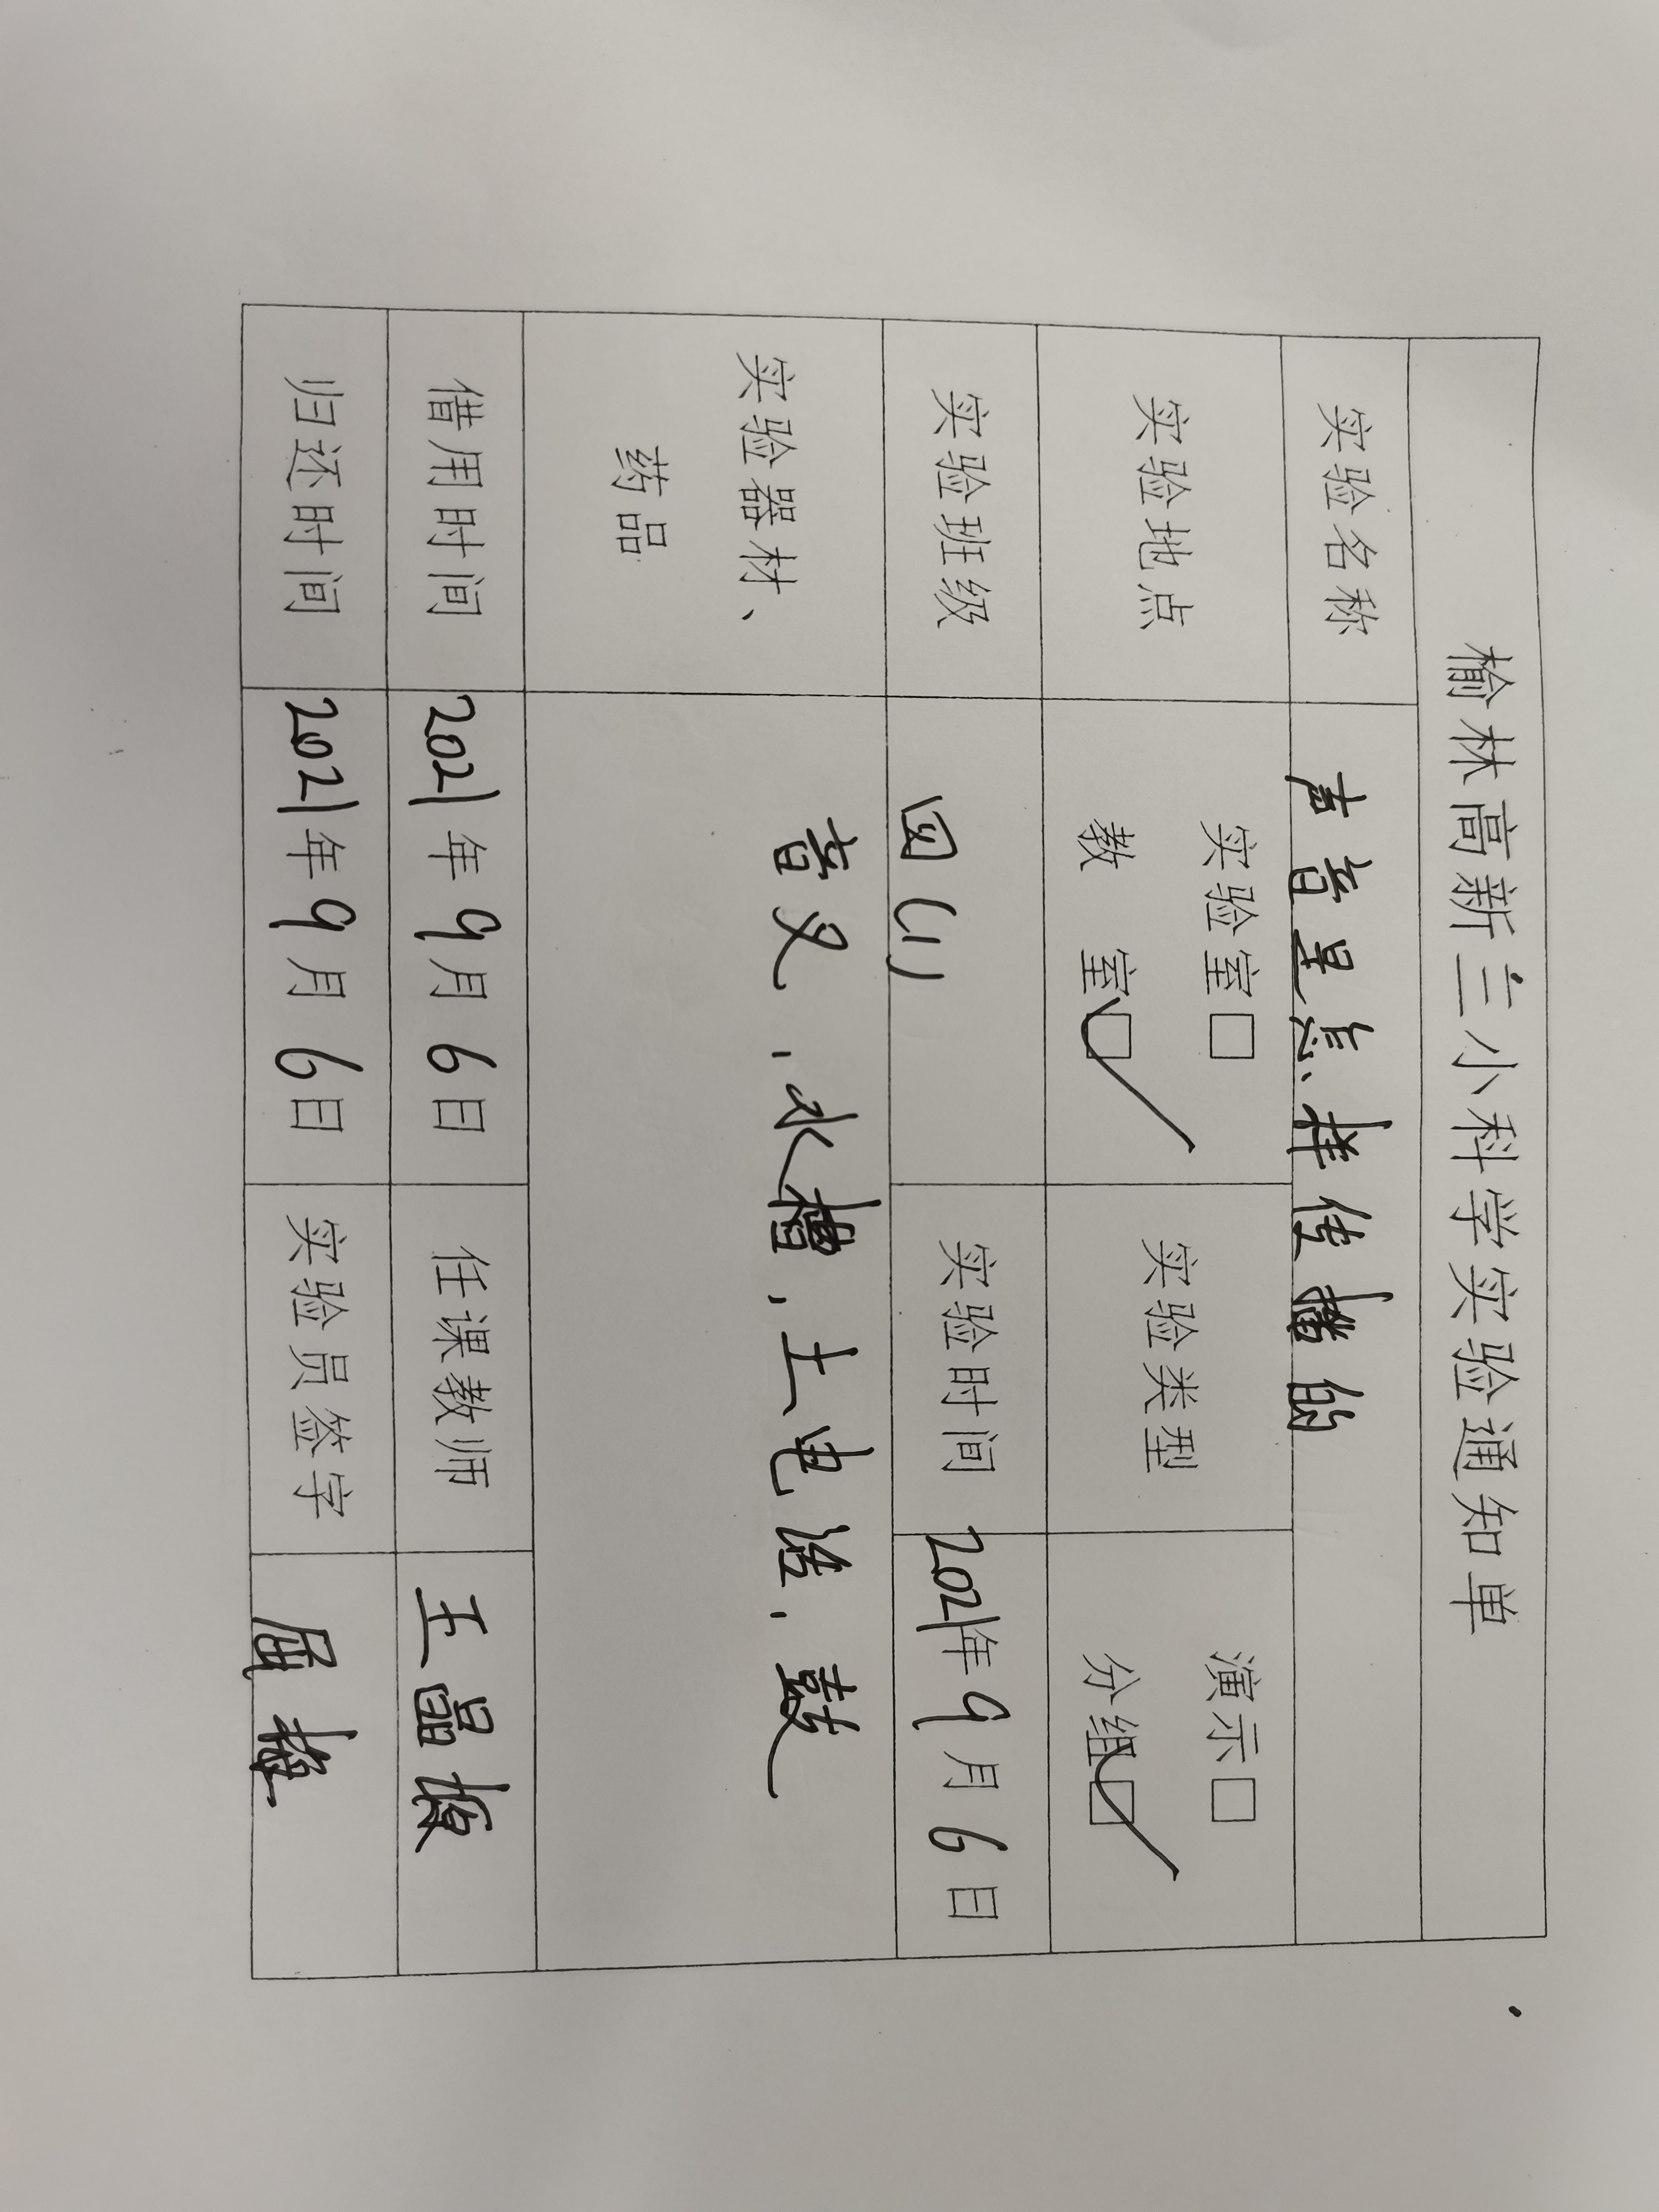 榆林高新三小科学实验通知单
实验名称 声音是怎样传播的
实验地点 实验室□ 教室☑ 实验类型 演示□ 分组☑
实验班级 四(1) 实验时间 2021年9月6日
实验器材、药品 音叉、水槽、土电话、鼓
借用时间 2021年9月6日 任课教师 王晶
归还时间 2021年9月6日 实验员签字 屈梅